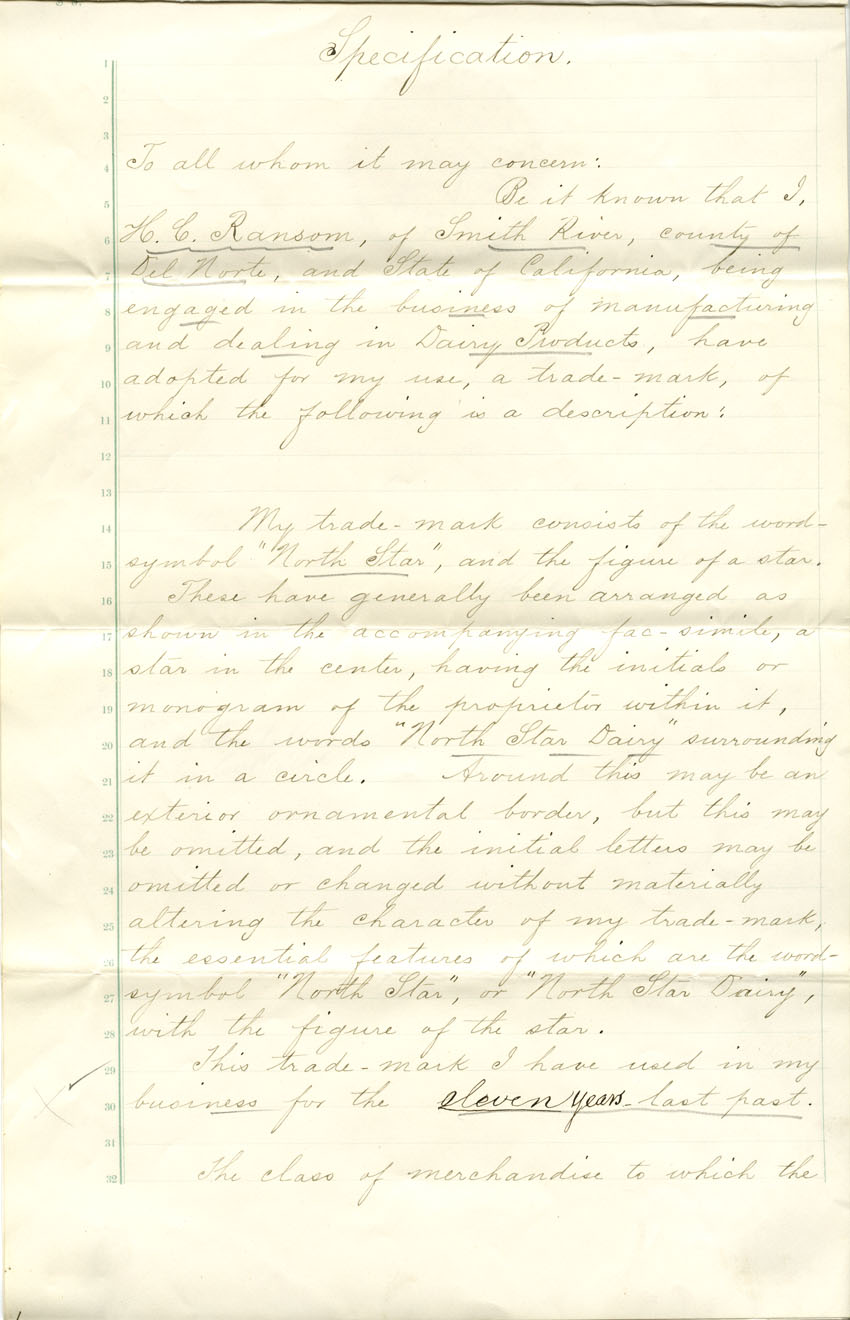 Specification.
1
2
3
4 To all whom it may concern:
5 Be it known that I,
6 H. C. Ransom, of Smith River, county of
7 Del Norte, and State of California, being
8 engaged in the business of manufacturing
9 and dealing in Dairy Products, have
10 adopted for my use, a trade-mark, of
11 which the following is a description:
12
13
14 My trade-mark consists of the word-
15 symbol "North Star", and the figure of a star.
16 These have generally been arranged as
17 shown in the accompanying fac-simile, a
18 star in the center, having the initials or
19 monogram of the proprietor within it,
20 and the words "North Star Dairy" surrounding
21 it in a circle. Around this may be an
22 exterior ornamental border, but this may
23 be omitted, and the initial letters may be
24 omitted or changed without materially
25 altering the character of my trade-mark,
26 the essential features of which are the word-
27 symbol "North Star", or "North Star Dairy",
28 with the figure of the star.
29 This trade-mark I have used in my
30 business for the eleven years last past.
31
32 The class of merchandise to which the